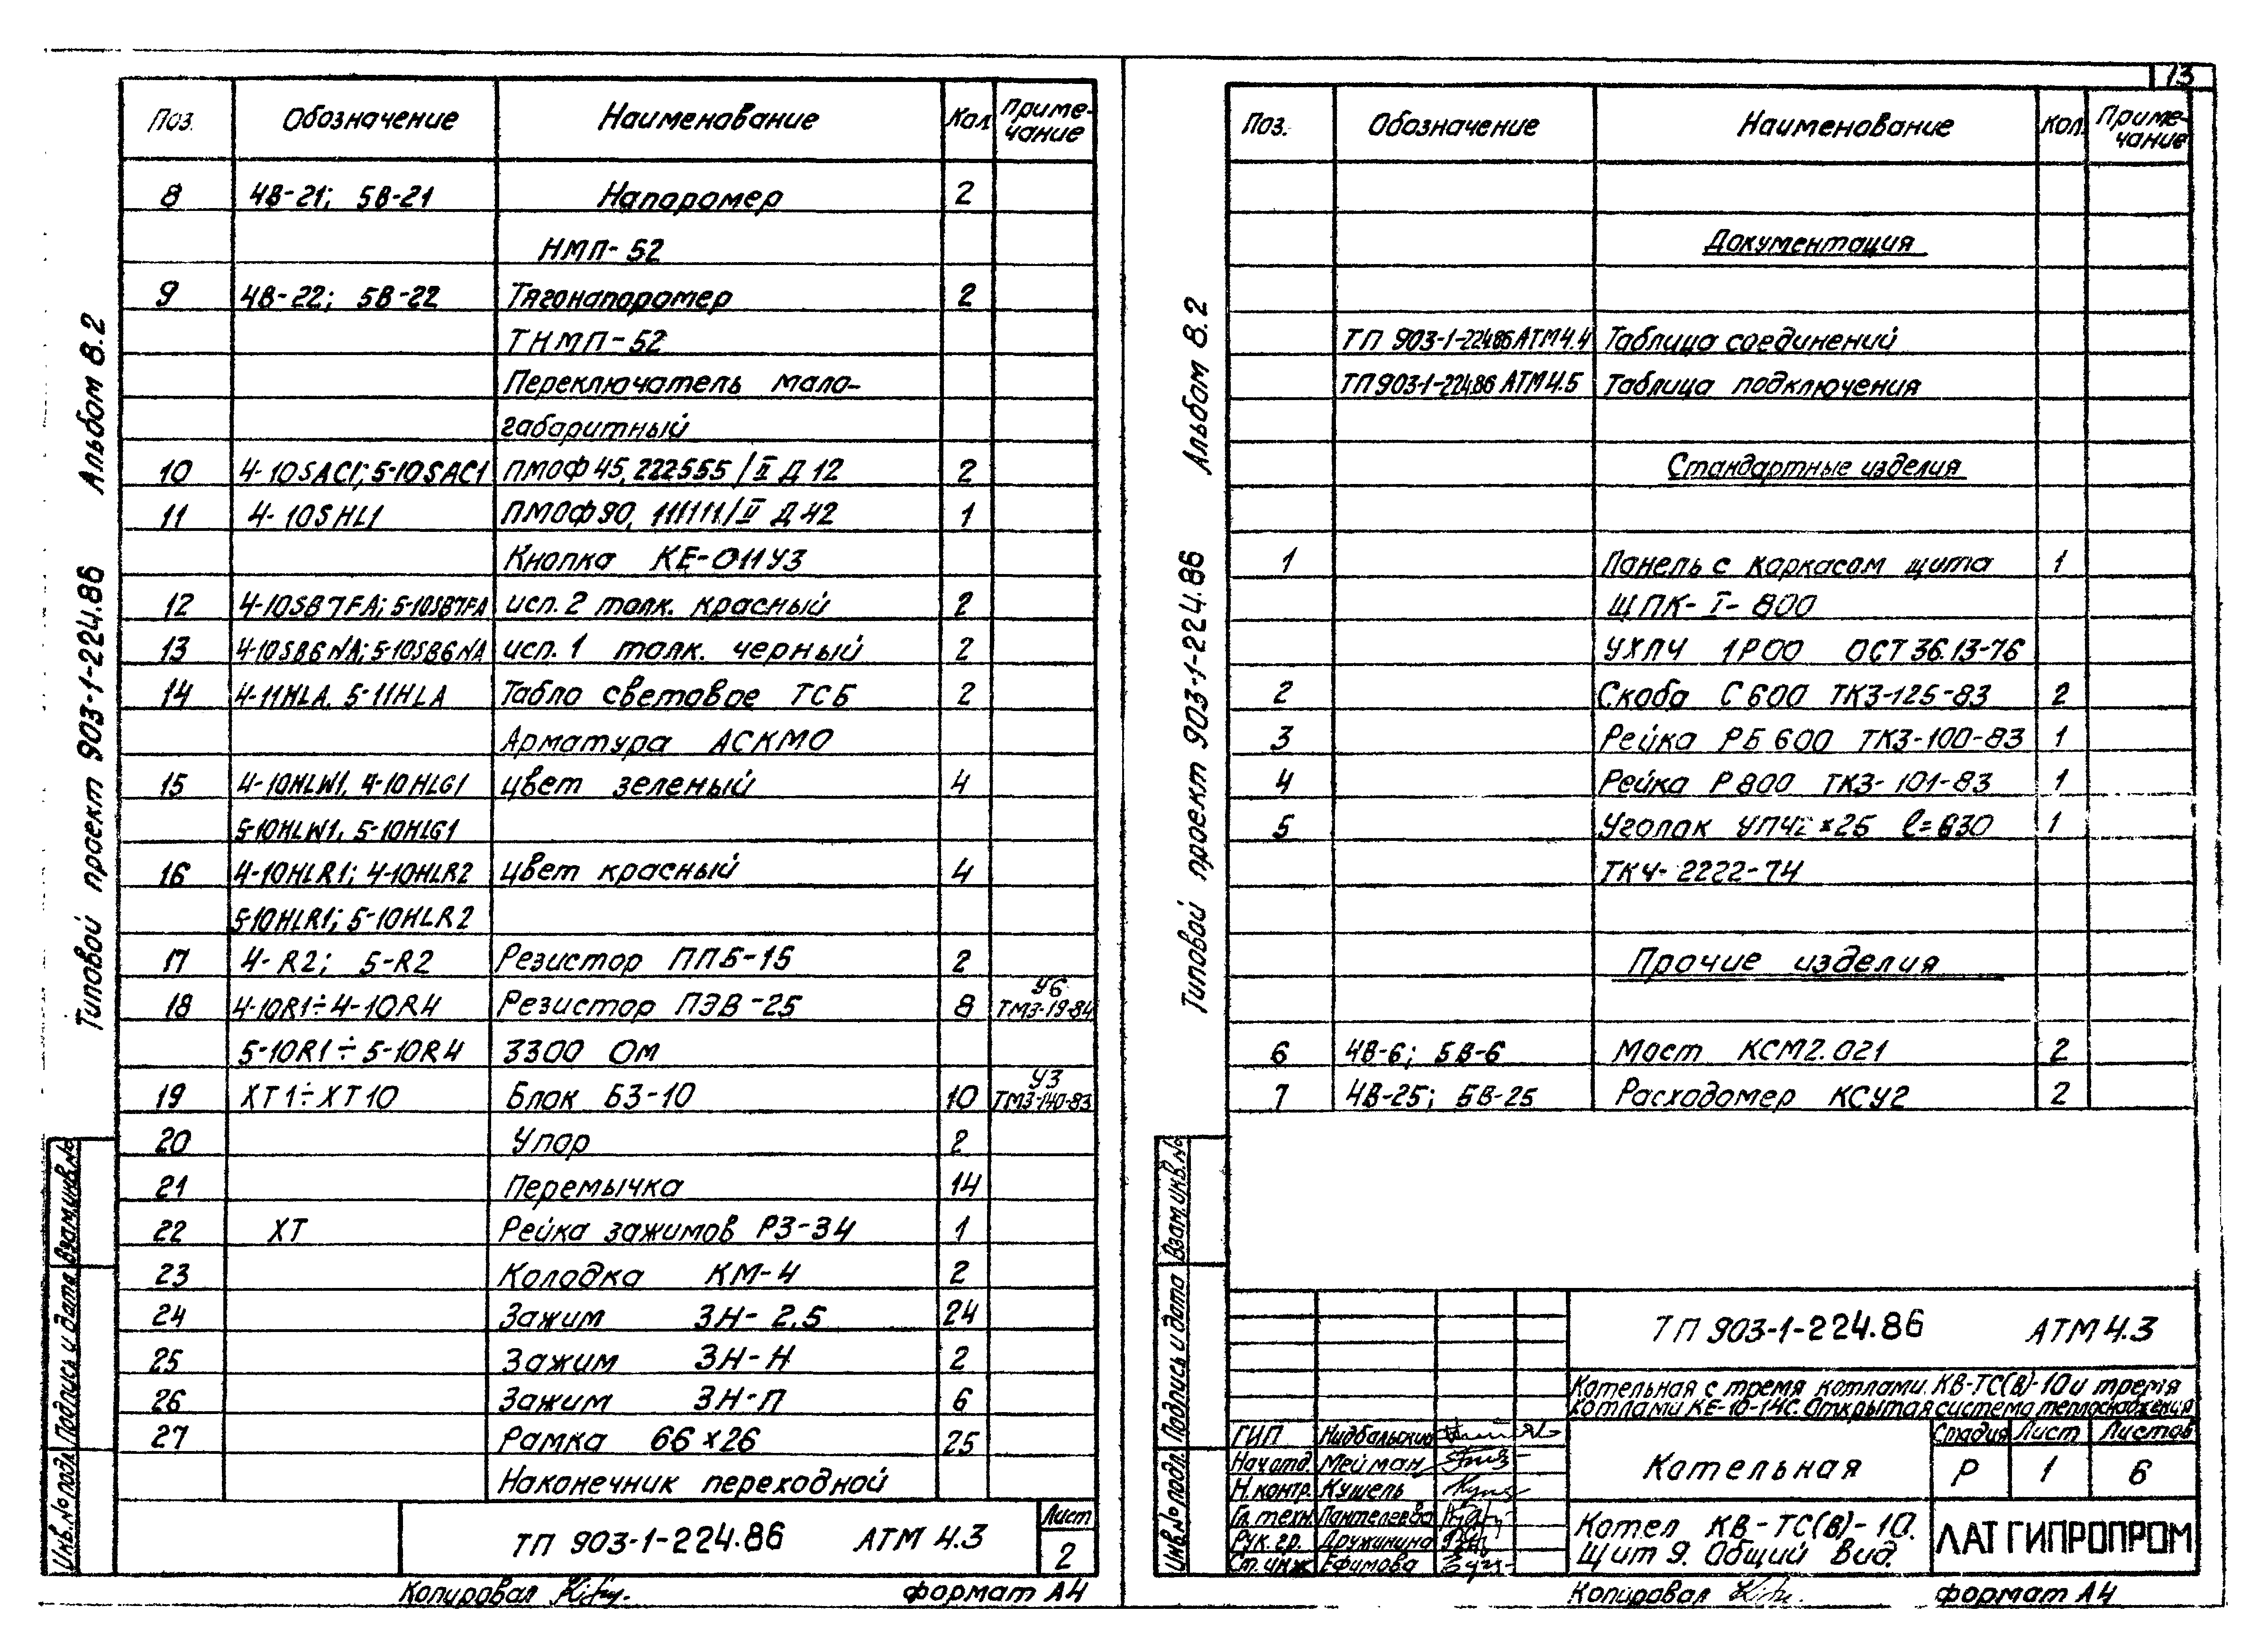 Альбом 8.2
Типовой проект 903-1-224.86
Поз. Обозначение Наименование Кол Приме-
чание
8 4В-21; 5В-21 Напоромер 2
НМП-52
9 4В-22; 5В-22 Тягонапоромер 2
ТНМП-52
Переключатель мало-
габаритный
10 4-10SAC1; 5-10SAC1 ПМОФ45, 222555/II Д12 2
11 4-10SHL1 ПМОФ90, 111111/II Д42 1
Кнопка КЕ-011У3
12 4-10SB7FA; 5-10SB7FA исп. 2 толк. красный 2
13 4-10SB6NA; 5-10SB6NA исп. 1 толк. черный 2
14 4-11HLA, 5-11HLA Табло световое ТСБ 2
Арматура АСКМО
15 4-10HLW1, 4-10HLG1 цвет зеленый 4
5-10HLW1, 5-10HLG1
16 4-10HLR1; 4-10HLR2 цвет красный 4
5-10HLR1; 5-10HLR2
17 4-R2; 5-R2 Резистор ППБ-15 2
18 4-10R1÷4-10R4 Резистор ПЭВ-25 8 У6
ТМ3-19-84
5-10R1÷5-10R4 3300 Ом
19 XT1÷XT10 Блок БЗ-10 10 У3
ТМ3-140-83
20 Упор 2
21 Перемычка 14
22 XT Рейка зажимов РЗ-34 1
23 Колодка КМ-4 2
24 Зажим ЗН-2.5 24
25 Зажим ЗН-Н 2
26 Зажим ЗН-П 6
27 Рамка 66×26 25
Наконечник переходной
ТП 903-1-224.86 АТМ 4.3 Лист
2
Взам.инв.№
Подпись и дата
Инв.№ подл.
Копировал формат А4
13
Альбом 8.2
Типовой проект 903-1-224.86
Поз. Обозначение Наименование Кол. Приме-
чание
Документация
ТП 903-1-224.86 АТМ4.4 Таблица соединений
ТП 903-1-224.86 АТМ4.5 Таблица подключения
Стандартные изделия
1 Панель с каркасом щита 1
ЩПК-I-800
УХЛ4 1Р00 ОСТ 36.13-76
2 Скоба С600 ТК3-125-83 2
3 Рейка РБ600 ТК3-100-83 1
4 Рейка Р800 ТК3-101-83 1
5 Уголок УП42×25 ℓ=630 1
ТК4-2222-74
Прочие изделия
6 4В-6; 5В-6 Мост КСМ2.021 2
7 4В-25; 5В-25 Расходомер КСУ2 2
ТП 903-1-224.86 АТМ 4.3
Котельная с тремя котлами КВ-ТС(В)-10 и тремя
котлами КЕ-10-14С. Открытая система теплоснабжения
ГИП Нидбальский
Нач отд. Мейман
Н. контр. Кушель
Гл. техн. Пантелеева
Рук. гр. Дружинина
Ст. инж Ефимова
Котельная
Стадия Лист Листов
Р 1 6
Котел КВ-ТС(В)-10.
Щит 9. Общий вид.
ЛАТГИПРОПРОМ
Взам.инв.№
Подпись и дата
Инв.№ подл.
Копировал формат А4